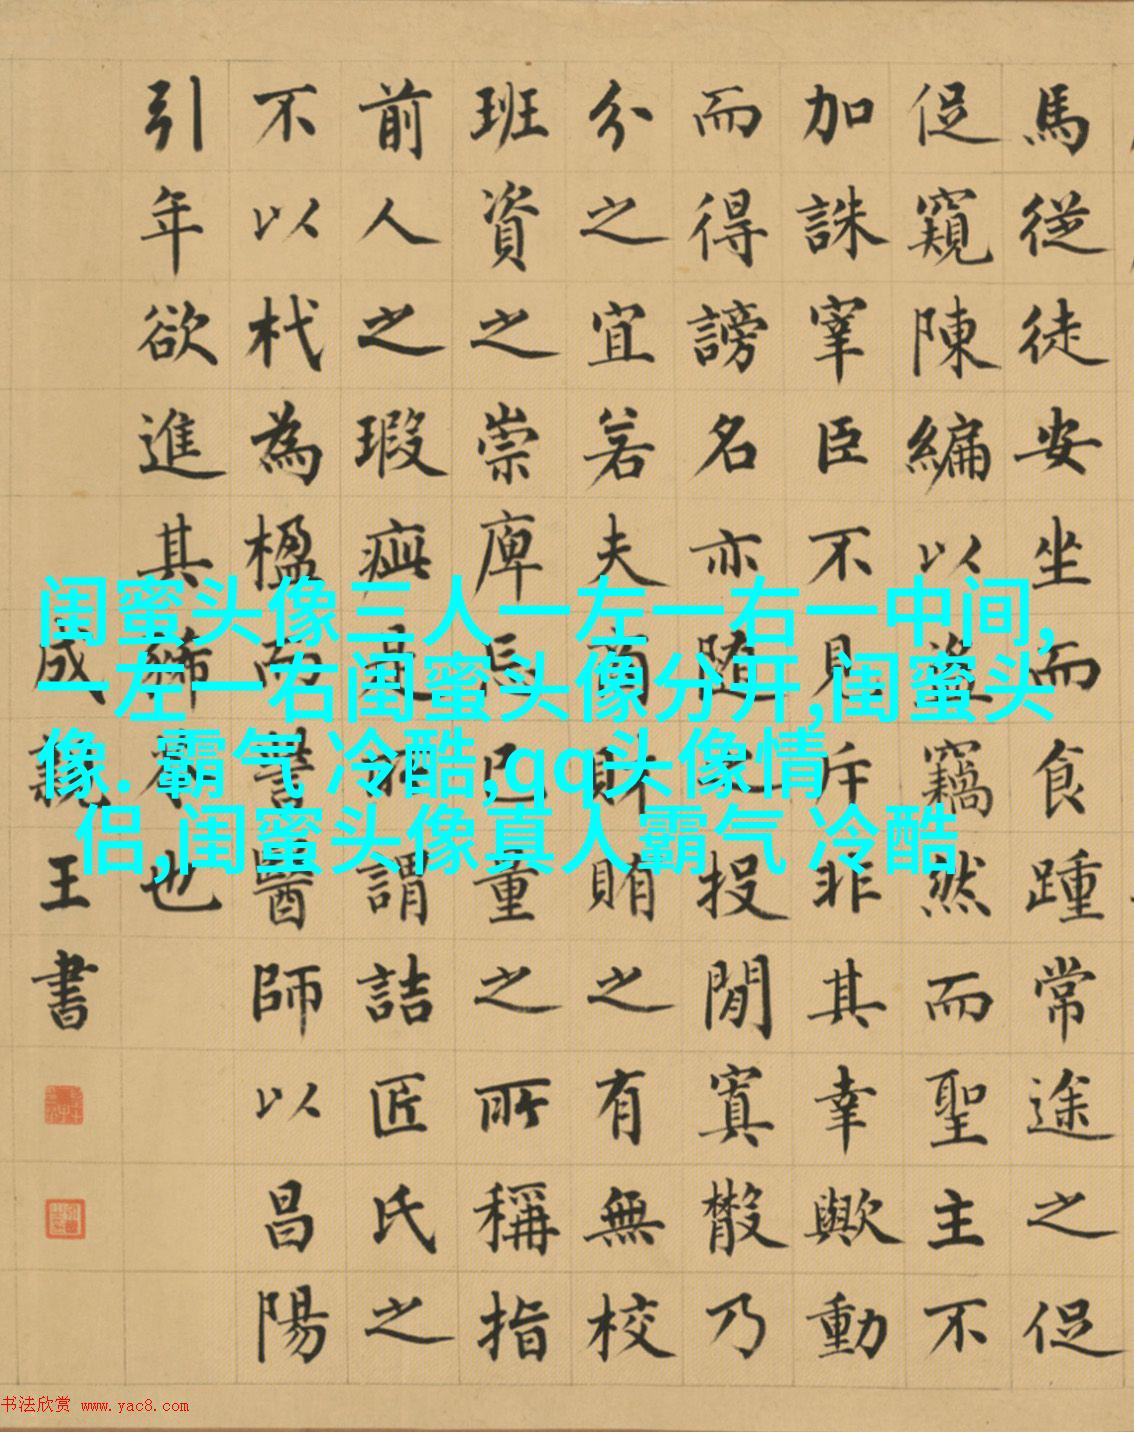 馬從徒安坐而食踵常途之促
促窺陳編以盜竊然而聖主不
加誅宰臣不見斥非其幸歟動
而得謗名亦随之投閒寘散乃
分之宜若夫商財賄之有無校
班資之崇庳忘己量之所稱指
前人之瑕疵是所謂詰匠氏之
不以杙為楹而訾醫師以昌陽
引年欲進其豨苓也
成親王書
闺蜜头像三人一左一右一中间,
一左一右闺蜜头像分开,闺蜜头
像. 霸气 冷酷,qq头像情
侣,闺蜜头像真人霸气 冷酷
书法欣赏 www.yac8.com